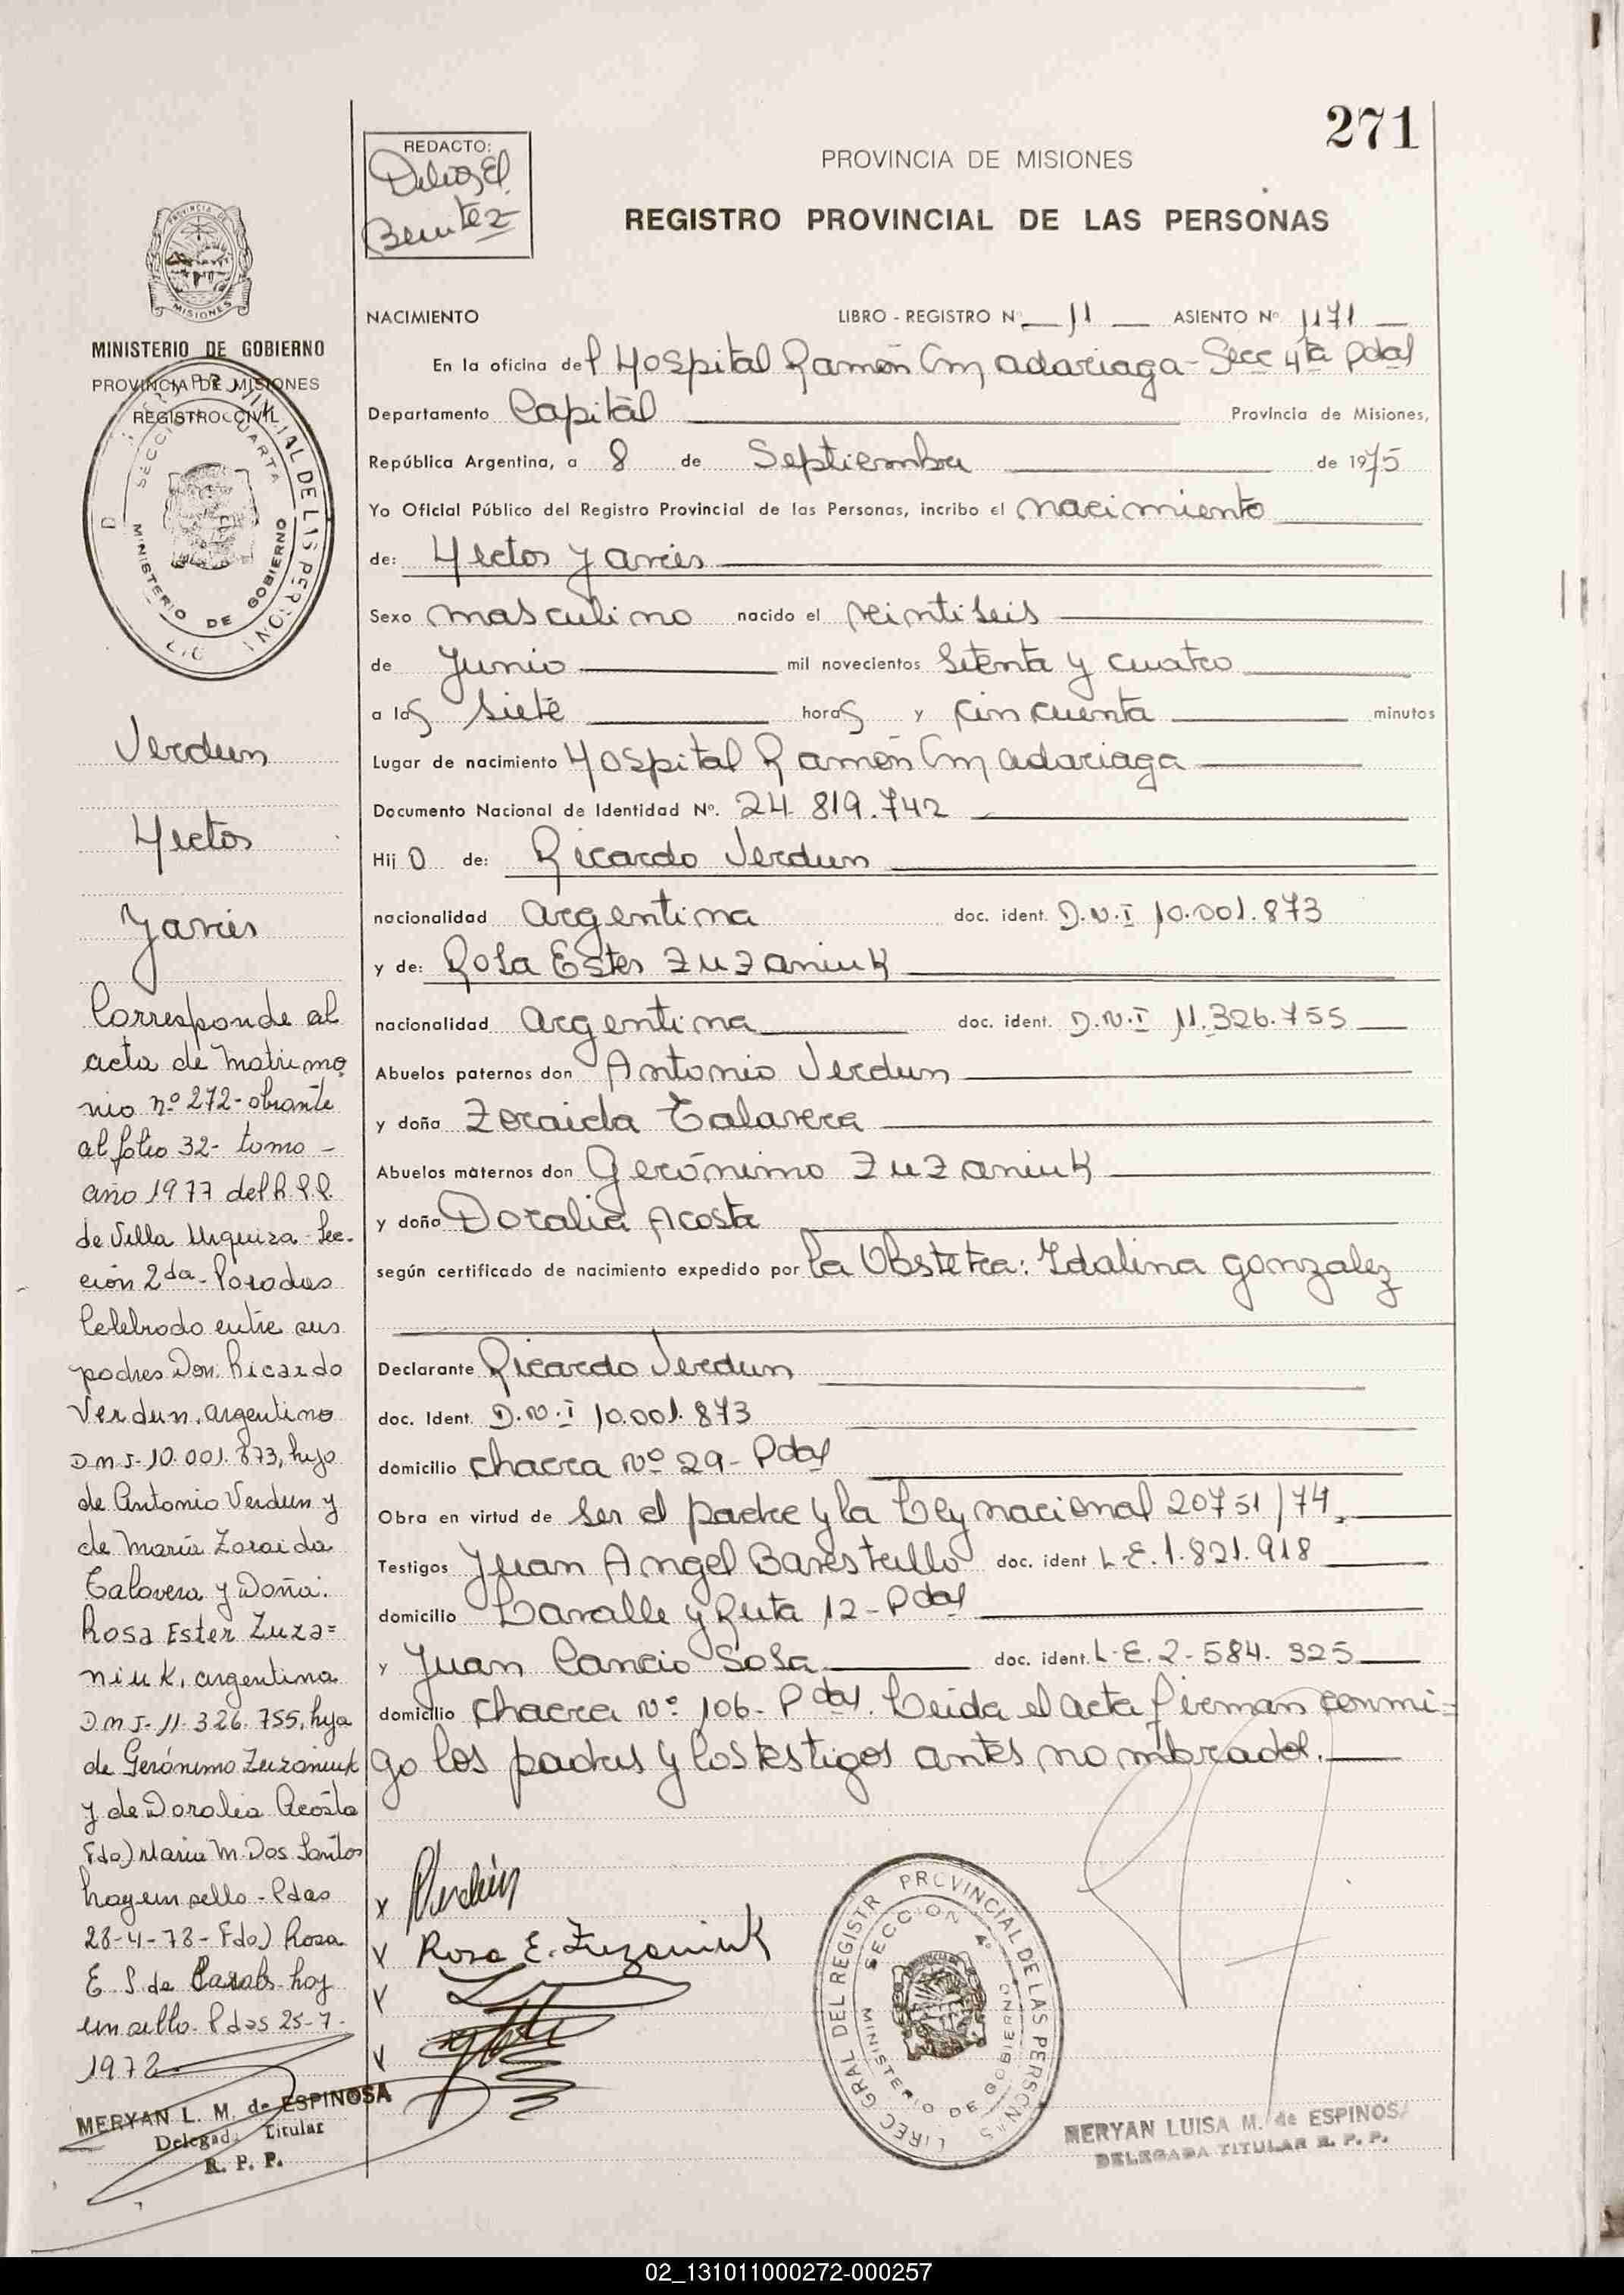 271
REDACTO:
Benitez
PROVINCIA DE MISIONES
REGISTRO PROVINCIAL DE LAS PERSONAS
PROVINCIA DE
MISIONES
MINISTERIO DE GOBIERNO
PROVINCIA DE MISIONES
REGISTRO CIVIL
SECCION CUARTA
MINISTERIO DE GOBIERNO
NACIMIENTO LIBRO - REGISTRO Nº 11 ASIENTO Nº 1171
En la oficina del Hospital Ramón Cm Adariaga - Secc 4ta Pdas
Departamento Capital Provincia de Misiones,
República Argentina, a 8 de Septiembre de 1975
Yo Oficial Público del Registro Provincial de las Personas, incribo el nacimiento
de: Hector Javier
Sexo masculino nacido el veintiseis
de Junio mil novecientos Setenta y cuatro
a las siete horas y cincuenta minutos
Lugar de nacimiento Hospital Ramón Cm Adariaga
Documento Nacional de Identidad Nº. 24.819.742
Hijo de: Ricardo Verdun
nacionalidad argentina doc. ident. D.N.I 10.001.873
y de: Rosa Ester Zuzaniuk
nacionalidad argentina doc. ident. D.N.I 11.326.755
Abuelos paternos don Antonio Verdun
y doña Zoraida Talavera
Abuelos maternos don Gerónimo Zuzaniuk
y doña Doralia Acosta
según certificado de nacimiento expedido por la Obstetra: Idalina Gonzalez
Declarante Ricardo Verdun
doc. Ident. D.N.I 10.001.873
domicilio chacra Nº 29 - Pdas
Obra en virtud de ser el padre y la Ley nacional 20751/74.
Testigos Juan Angel doc. ident L.E. 1.821.918
domicilio Lavalle y Ruta 12 - Pdas
y Juan Cancio Sosa doc. ident. L.E. 2.584.325
domicilio chacra Nº 106 - Pdas. Leida el acta firman conmi=
go los padres y los testigos antes nombrados.
Verdun
Hector
Javier
Corresponde al
acta de matrimo
nio nº 272 - obrante
al folio 32 - tomo -
año 1977 del R.P.P.
de Villa Urquiza - Sec-
ción 2da - Posadas
Celebrado entre sus
padres Don: Ricardo
Verdun, argentino
DNI - 10.001.873, hijo
de Antonio Verdun y
de María Zoraida
Talavera y Doña:
Rosa Ester Zuza=
niuk, argentina
DNI - 11.326.755, hija
de Gerónimo Zuzaniuk
y de Doralia Acosta
Fdo) Maria M. Dos Santos
hay un sello - Pdas
28-4-78 - Fdo) Rosa
E. S. de hay
un sello. Pdas 25-7-
1978
MERYAN L. M. de ESPINOSA
Delegada Titular
R. P. P.
x Verdún
x Rosa E. Zuzaniuk
x
x
DIREC GRAL DEL REGISTR PROVINCIAL DE LAS PERSONAS
SECCION 4º
MINISTERIO DE GOBIERNO
MERYAN LUISA M. de ESPINOSA
DELEGADA TITULAR R. P. P.
02_131011000272-000257